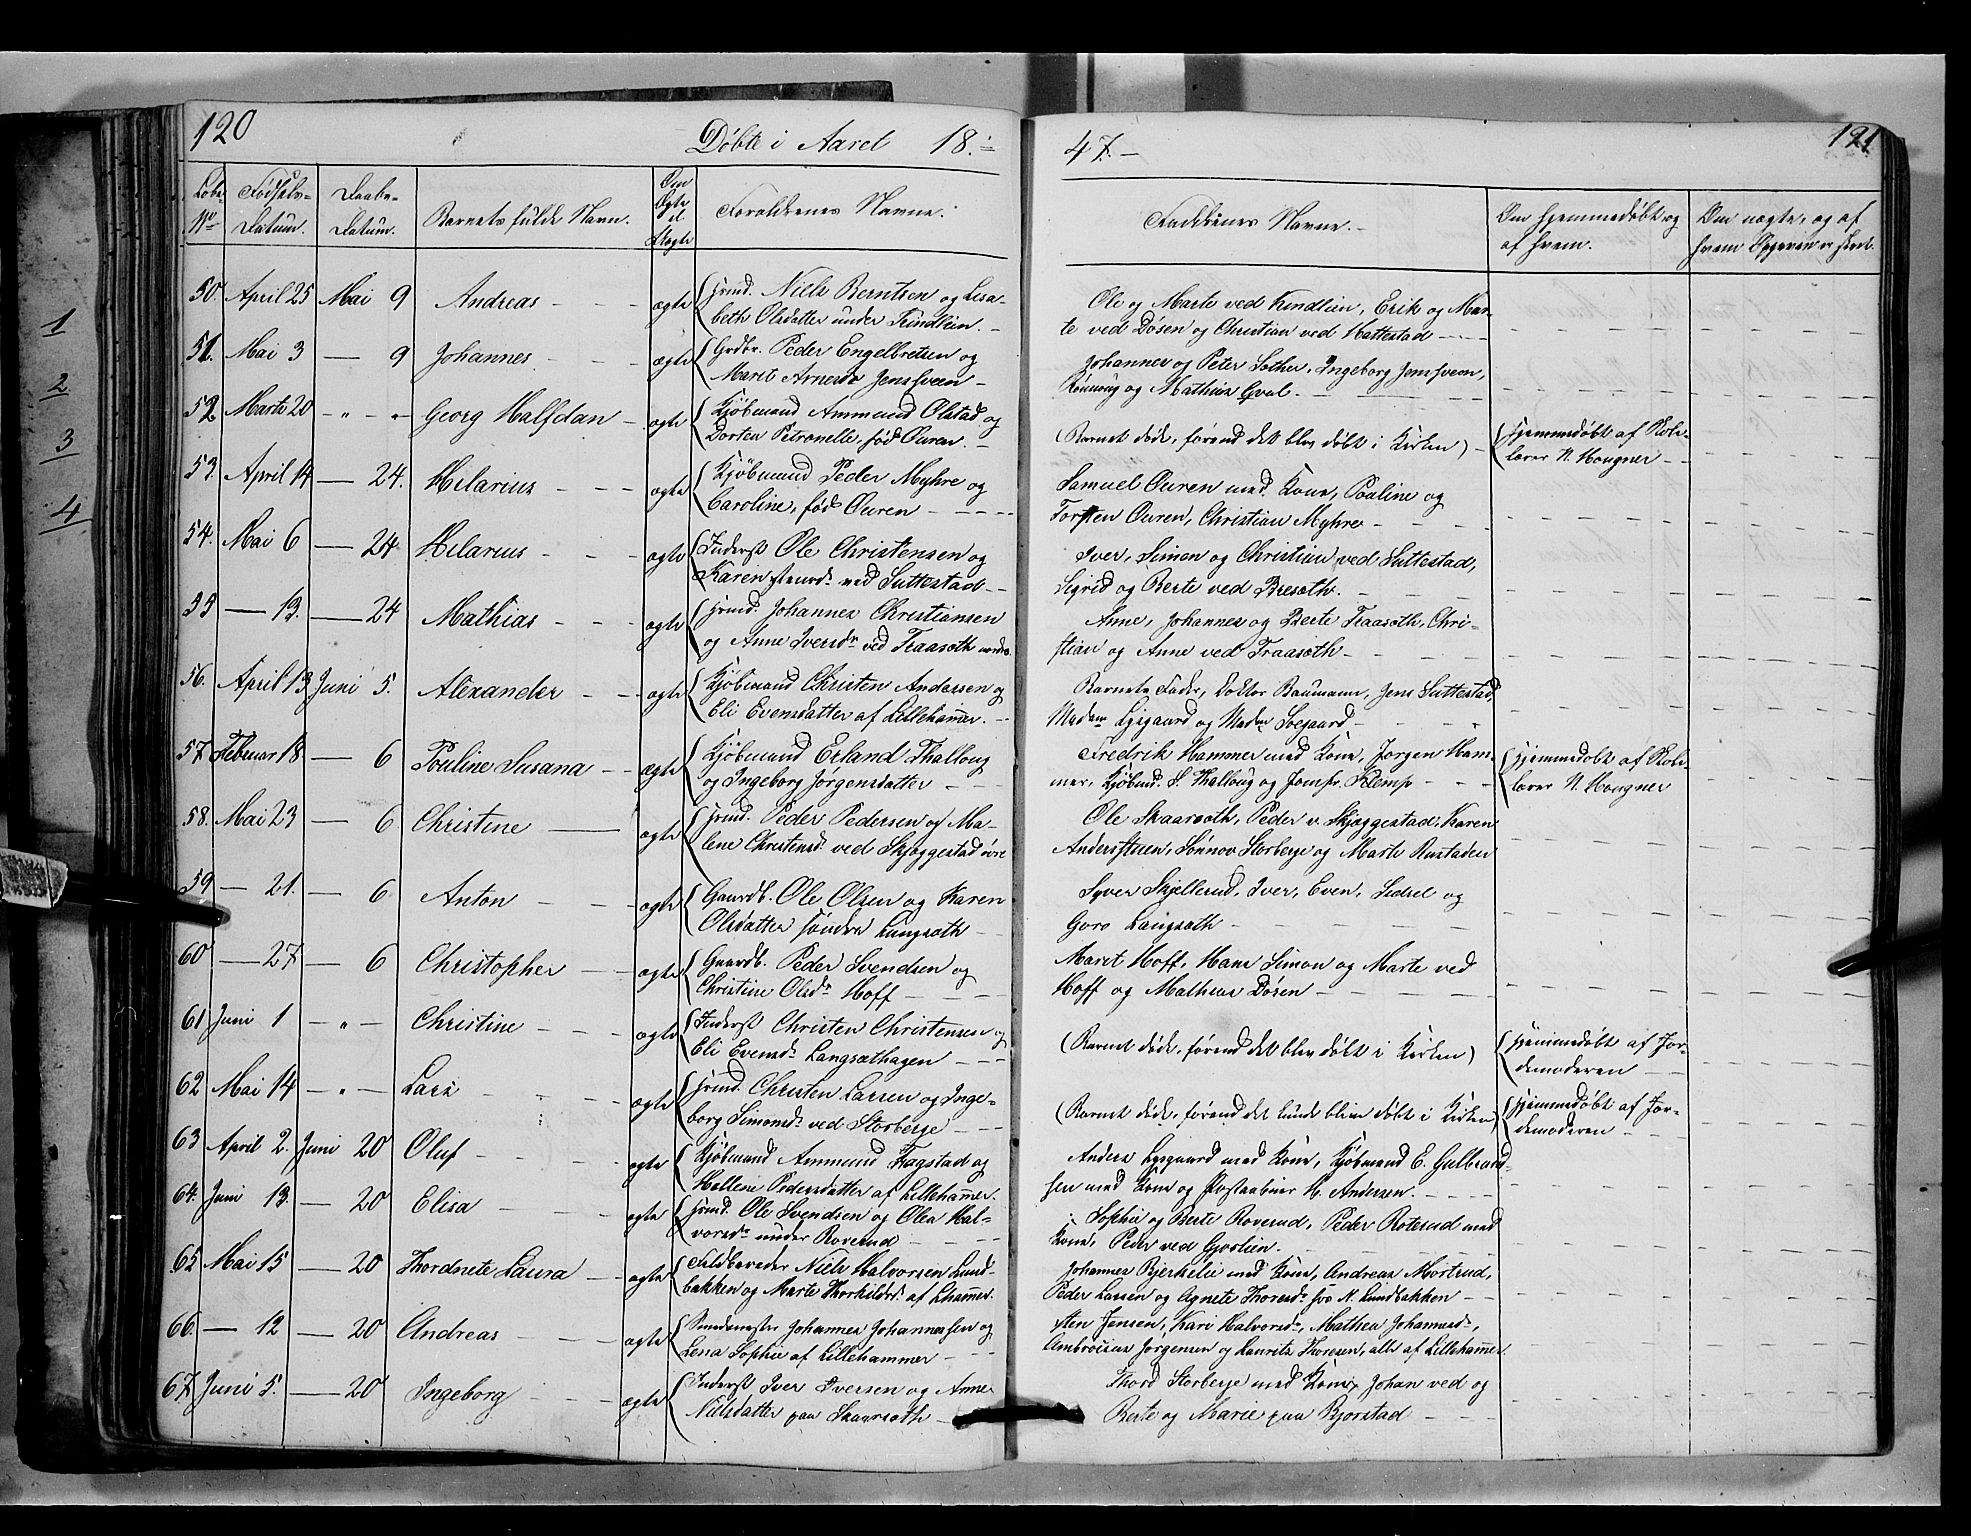 120
Døbte i Aaret 18
47.
121
Løbe No
Fødsels-Datum.
Daabs-Datum.
Barnets fulde Navn.
Om Ægte el. Uægte
Forældrenes Navne.
Faddernes Navne.
Om hjemmedøbt og af hvem.
Om uægte, og af hvem Opgaven er skeet.
1
2
3
4
50. April 25 Mai 9 Andreas ægte Huusmd. Niels Berntsen og Lisa-
beth Olsdatter under Kindlien.
Ole og Marte ved Kindlien, Erik og Mar-
te ved Døsen og Christian ved Hattestad
51. Mai 3 — 9 Johannes ægte Grdbr. Peder Engelbretsen og
Marit Arnesdr Jenssveen
Johannes og Peter Sother, Ingeborg Jenssveen,
Rønnoug og Mathias Hval.
52 Marts 20 - " - " Georg Halfdan ægte Kjøbmand Ammund Olstad og
Dorten Petronelle, fød Øuren.
(Barnet døde, førend det blev døbt i Kirken)
Hjemmedøbt af Skole-
lærer N. Hougner
53. April 14 — 24. Hilarius ægte Kjøbmand Peder Myhre og
Caroline, fød Øuren
Samuel Øuren med Kone, Pauline og
Torsten Øuren, Christian Myhre
54. Mai 6 — 24 Hilarius ægte Inderst Ole Christensen og
Karen ved Suttestad
Iver, Simon og Christian ved Suttestad,
Sigrid og Berte ved Bresæth.
55 — 13. — 24 Mathias ægte Huusmd. Johannes Christiansen
og Anne Iversdr ved Traasæth nordre
Anne, Johannes og Berte Traasæth, Chri-
stian og Anne ved Traasæth
56. April 13 Juni 5. Alexander ægte Kjøbmand Christen Andersen og
Eli Evensdatter af Lillehammer.
Barnets Fader, Doktor Baumann, Jens Suttestad,
Madam Lysgaard og Madm Soegaard
57 Februar 18 — 6 Pouline Susana ægte Kjøbmand Erland Thalloug
og Ingeborg Jørgensdatter
Fredrik Hammer med Kone, Jørgen Ham-
mer, Kjøbmd. S. Thalloug og Jomfr. Klemp
Hjemmedøbt af Skole-
lærer N. Hougner
58. Mai 23 — 6 Christine ægte Huusmd. Peder Pedersen og Ma-
lene Christensdr ved Skjæggestad øvre
Ole Skaaræth, Peder v. Skjæggestad, Karen
Andersstuen, Synnøv Storberge og Marte Rustaden
59 — 21. — 6 Anton ægte Gaardb. Ole Olsen og Karen
Olsdatter søndre Langsæth
Syver Skjellerud, Iver, Even, Sidsel og
Goro Langsæth
60 — 27 — 6 Christopher ægte Gaardb. Peder Svendsen og
Christine Olsdr Hoff
Maret Hoff, Hans Simon og Marte ved
Hoff og Mathias Døsen
61 Juni 1 - " - Christine ægte Inderst Christen Christensen og
Eli Evensdr Langsæthagen
(Barnet døde, førend det blev døbt i Kirken)
Hjemmedøbt af Jor-
demoderen
62 Mai 14 - " - Lars ægte Huusmd. Christen Larsen og Inge-
borg Simonsdr ved Storberge
(Barnet døde, førend det kunde blive døbt i Kirken)
Hjemmedøbt af Jor-
demoderen
63 April 2. Juni 20 Oluf ægte Kjøbmand Ammund Fragstad og
Hellene Pedersdatter af Lillehammer.
Anders Lysgaard med Kone, Kjøbmand E. Gulbrand-
sen med Kone og Postaabner H. Andersen.
64. Juni 13. — 20 Elisa ægte Huusmd. Ole Svendsen og Olea Hal-
vorsdr under Roverud
Sophie og Berte Roverud, Peder Roterud med
Kone, Peder ved Gjøslien.
65 Mai 15 — 20 Thordnete Laura ægte Feldbereder Niels Halvorsen Lund-
bakken og Marte Thorkildsd. af Lhammer.
Johannes Bjerkelie med Kone, Andreas Mortrud,
Peder Larsen og Agnete Thoresdr hos N. Lundbakken
66. — 12 — 20 Andreas ægte Smedemester Johannes Johannessen og
Lena Sophie af Lillehammer
Sten Jensen, Kari Halvorsdr, Mathea Johannesdr,
Ambrosius Jørgensen og Laurits Thoresen, alle af Lillehammer.
67 Juni 5. — 20 Ingeborg ægte Inderst Iver Iversen og Anne
Nielsdatter paa Skaaræth
Thord Storberge med Kone, Johan ved og
Berte og Marie paa Bjørstad